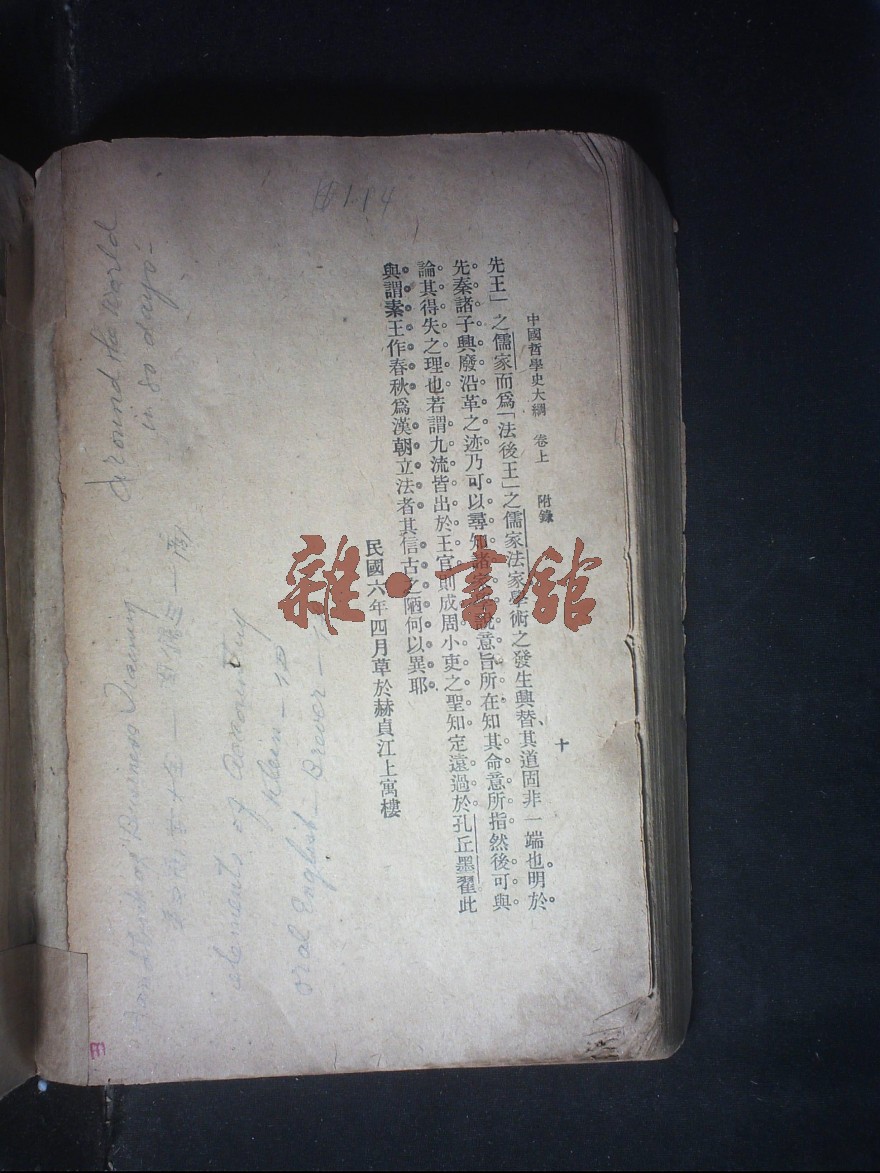 中國哲學史大綱　卷上　附錄
十
先王」之儒家而爲「法後王」之儒家法家學術之發生興替、其道固非一端也明於
先秦諸子興廢沿革之迹乃可以尋知諸家學說意旨所在知其命意所指然後可與
論其得失之理也若謂九流皆出於王官則成周小吏之聖知定遠過於孔丘墨翟此
與謂素王作春秋爲漢朝立法者其信古之陋何以異耶
民國六年四月草於赫貞江上寓樓
雜·書館
Around the World
in 80 days
elements of accountancy
Klein
oral English — Brewer